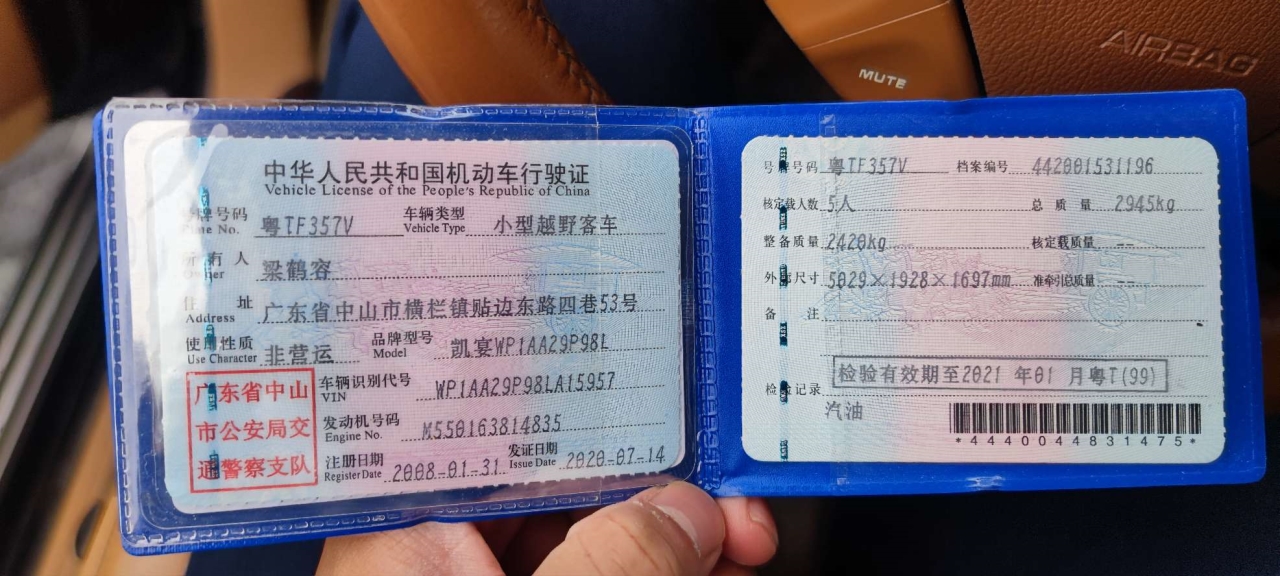 MUTE
AIRBAG
中华人民共和国机动车行驶证
Vehicle License of the People's Republic of China
号牌号码 粤TF357V 车辆类型 小型越野客车
Plate No. Vehicle Type
所有人 梁鹤容
Owner
住址 广东省中山市横栏镇贴边东路四巷53号
Address
使用性质 非营运 品牌型号 凯宴WP1AA29P98L
Use Character Model
广东省中山
市公安局交
通警察支队
车辆识别代号 WP1AA29P98LA15957
VIN
发动机号码 M550163814835
Engine No.
注册日期 2008-01-31 发证日期 2020-07-14
Register Date Issue Date
号牌号码 粤TF357V 档案编号 442001531196
核定载人数 5人 总质量 2945kg
整备质量 2420kg 核定载质量 --
外廓尺寸 5029×1928×1697mm 准牵引总质量 --
备注
检验记录 检验有效期至2021年01月粤T(99)
汽油
*4440044831475*